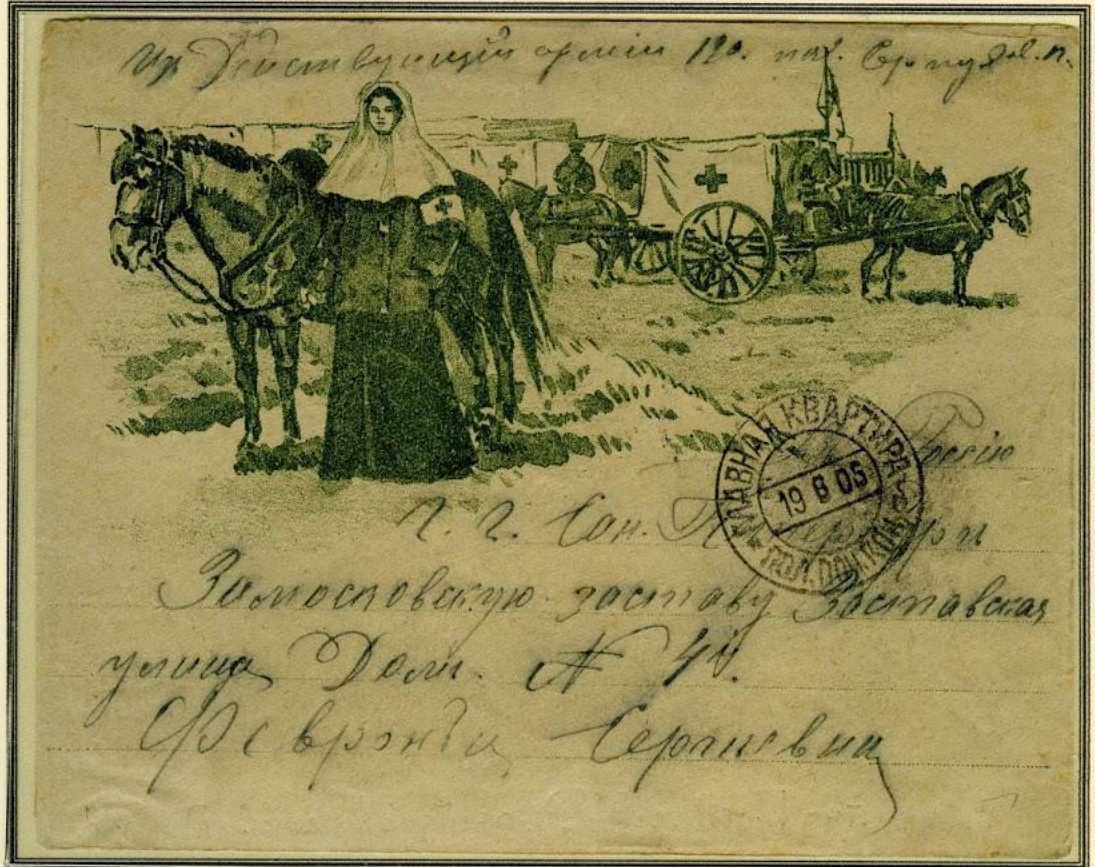 Из Действующей армии 120. пех. Серпух. п.
ГЛАВНАЯ КВАРТИРА
19 8 05
ПОЛ. ПОЧ. КОН.
Россію
Г. Г. Сан.
Замосковскую заставу Заставская
улица Дом. №
Февронги Сергиевии